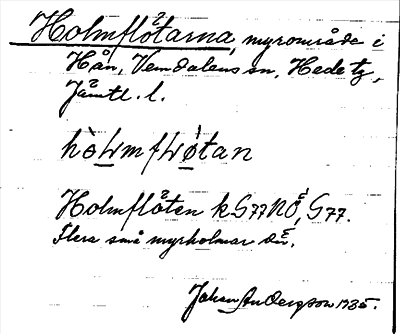 Holmflåtarna, myrområde i
Hån, Vemdalens sn, Hede tg,
Jämtl. l.
Holmflåten k S77NÖ, S77.
Flera små myrholmar där.
Johan Andersson 1935.